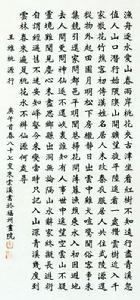 漁舟逐水愛山春兩岸桃花夾古津坐看紅樹不知遠行盡青溪忽
值人山口潛行始隈隩山開曠望旋平陸遙看一處攢雲樹近入千
家散花竹樵客初傳漢姓名居人未改秦衣服居人共住武陵源還
從物外起田園月明松下房櫳靜日出雲中雞犬喧驚聞俗客爭來
集競引還家問都邑平明閭巷掃花開薄暮漁樵乘水入初因避地
去人間更問神仙遂不還峽裏誰知有人事世中遙望空雲山不疑
靈境難聞見塵心未盡思鄉縣出洞無論隔山水辭家終擬長游衍
自謂經過舊不迷安知峰壑今來變當時只記入山深青溪幾度到
雲林春來遍是桃花水不辨仙源何處尋
王維桃源行
庚午首春八十七叟書福州畫院